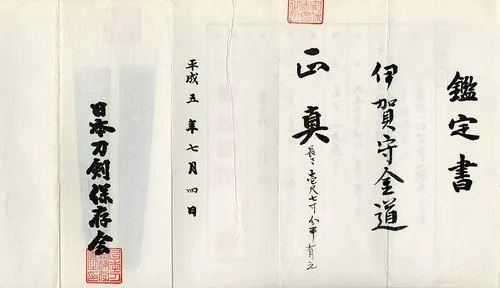 鑑定書
伊賀守金道
正真
長さ壱尺七寸分半有之
平成五年七月四日
日本刀剣保存会